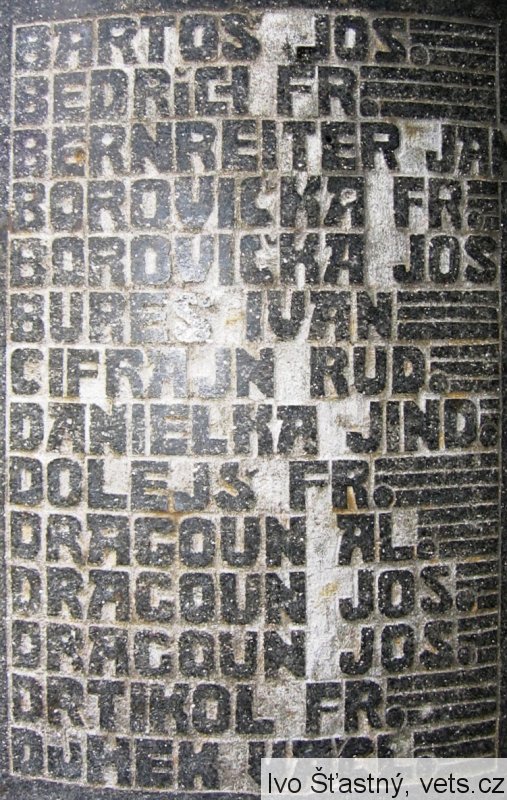 BARTOŠ JOS.
BEDŘICH FR.
BERNREITER JAN
BOROVIČKA FR.
BOROVIČKA JOS
BUREŠ IVAN
CIFRAJN RUD.
DANIELKA JIND.
DOLEJŠ FR.
DRAGOUN AL.
DRAGOUN JOS.
DRAGOUN JOS.
DRTIKOL FR.
DUMEK
Ivo Šťastný, vets.cz